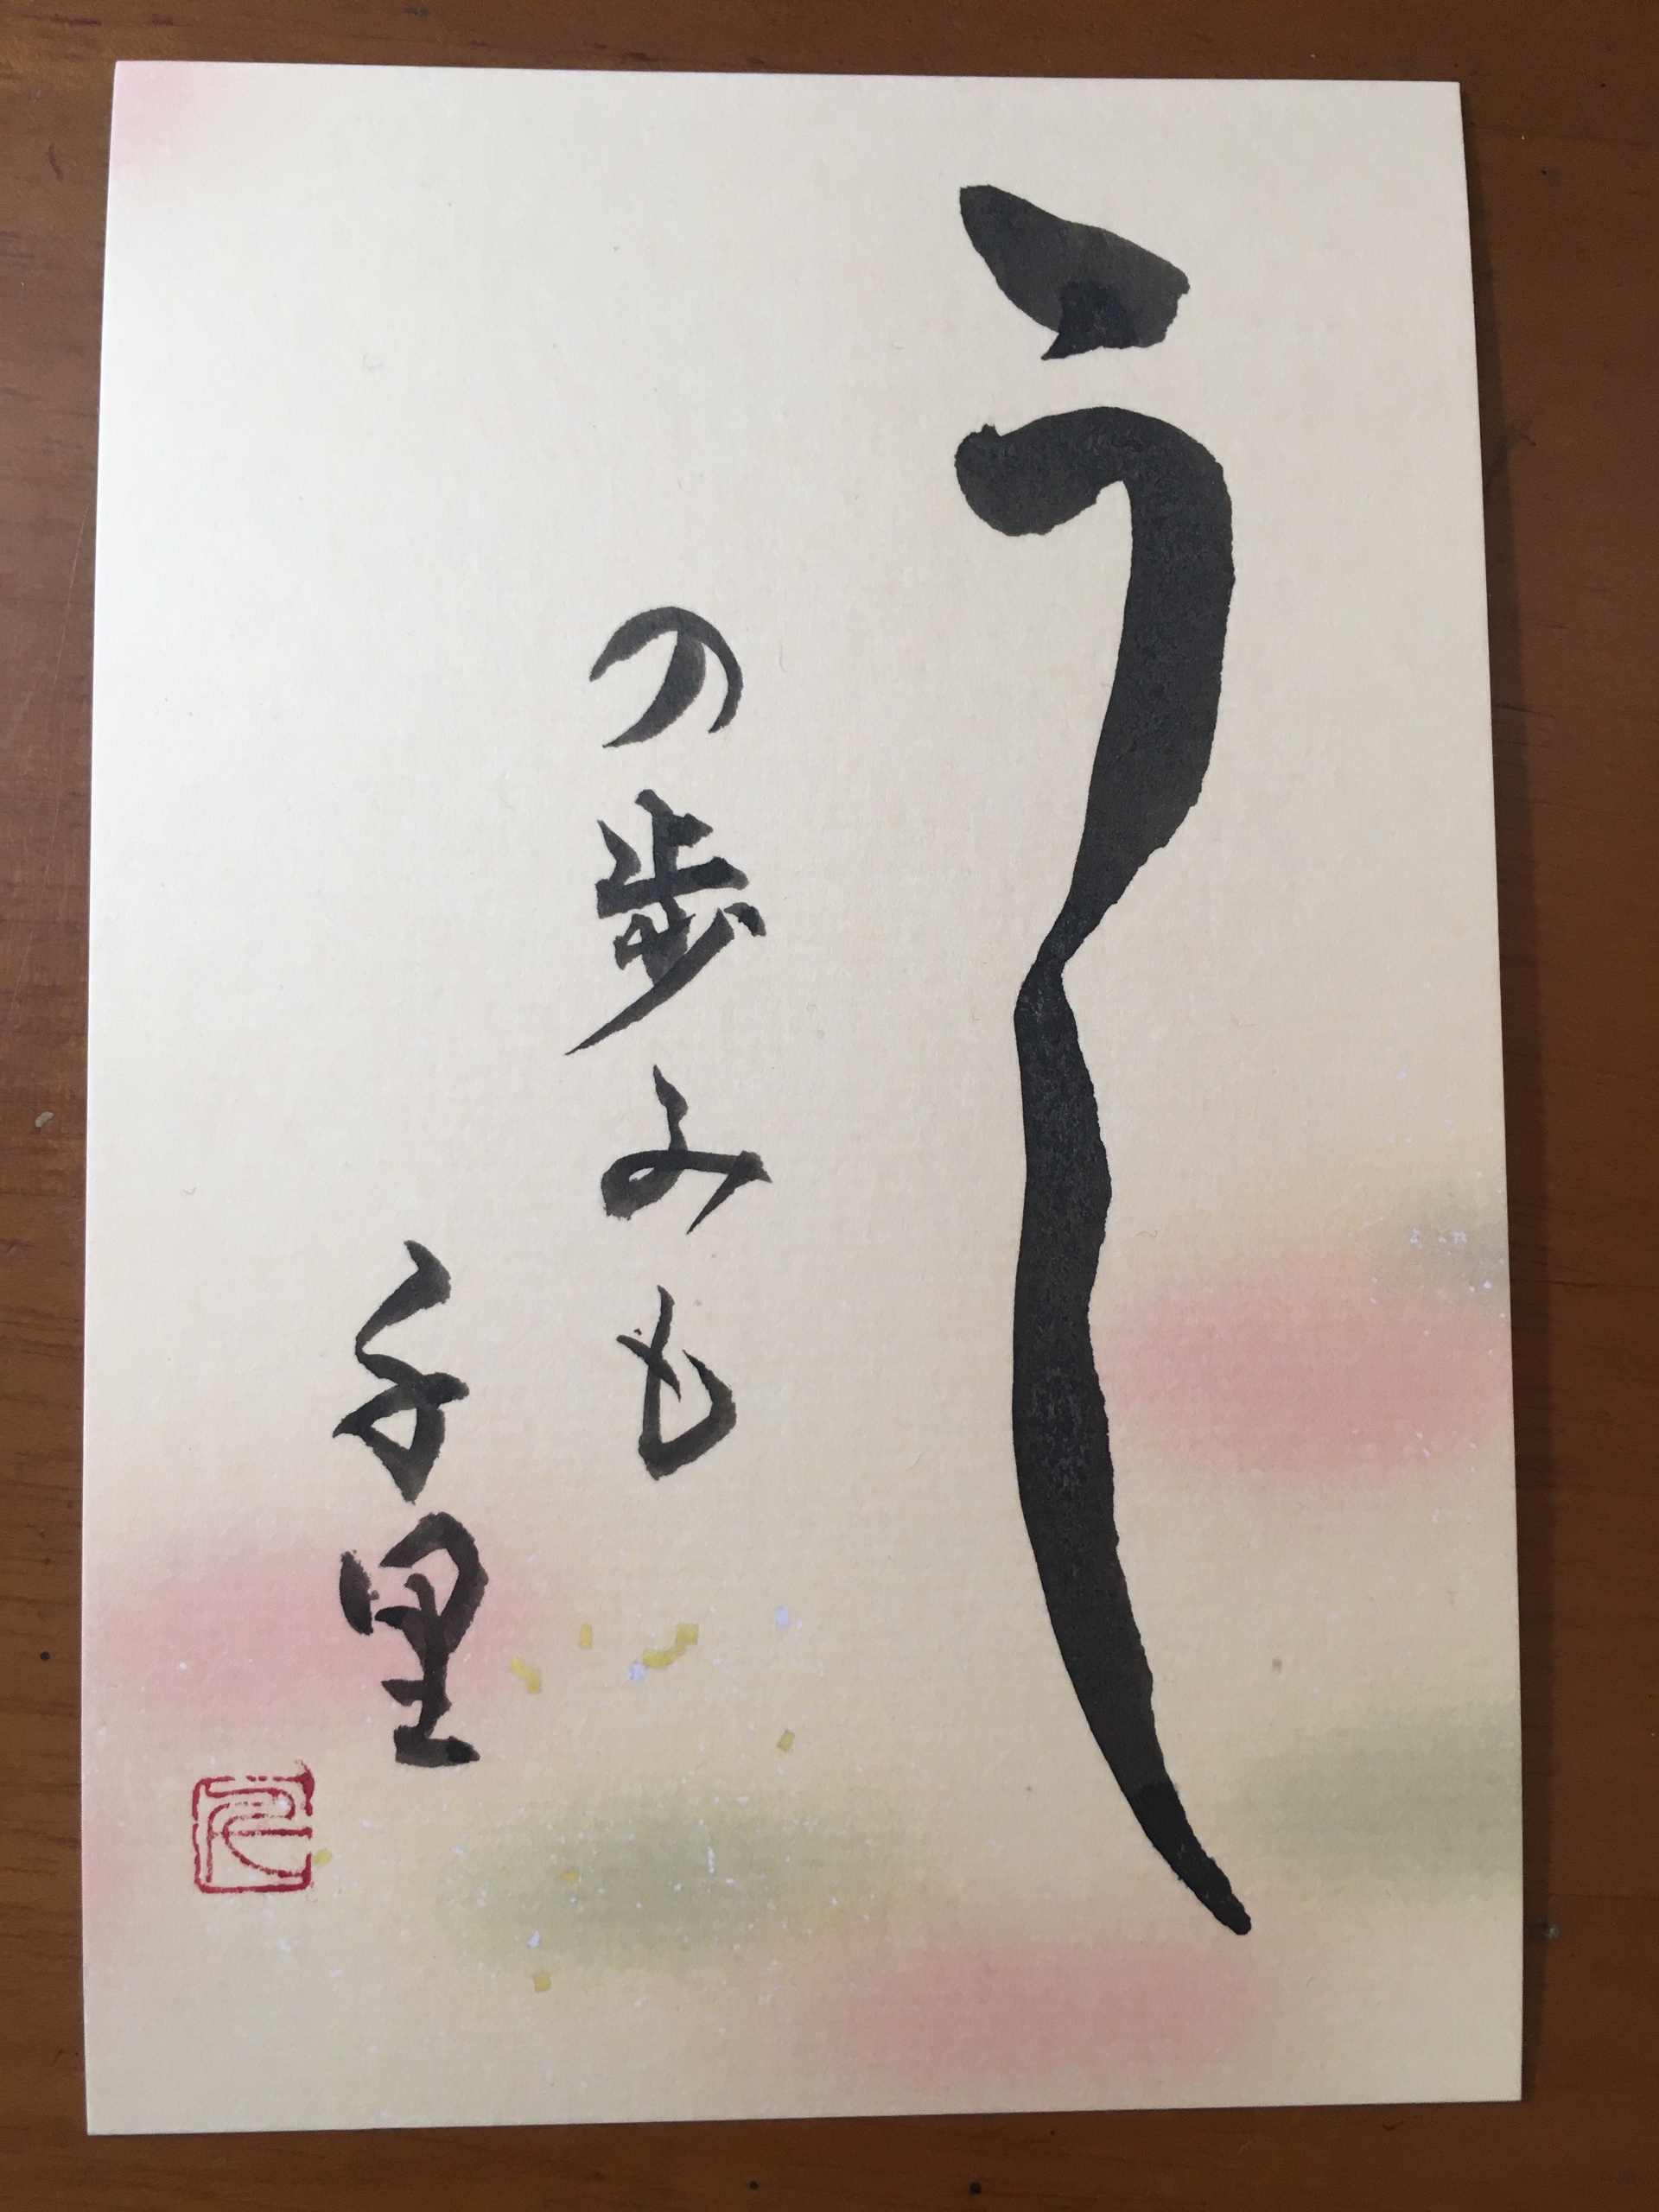 うし
の歩みも
千里